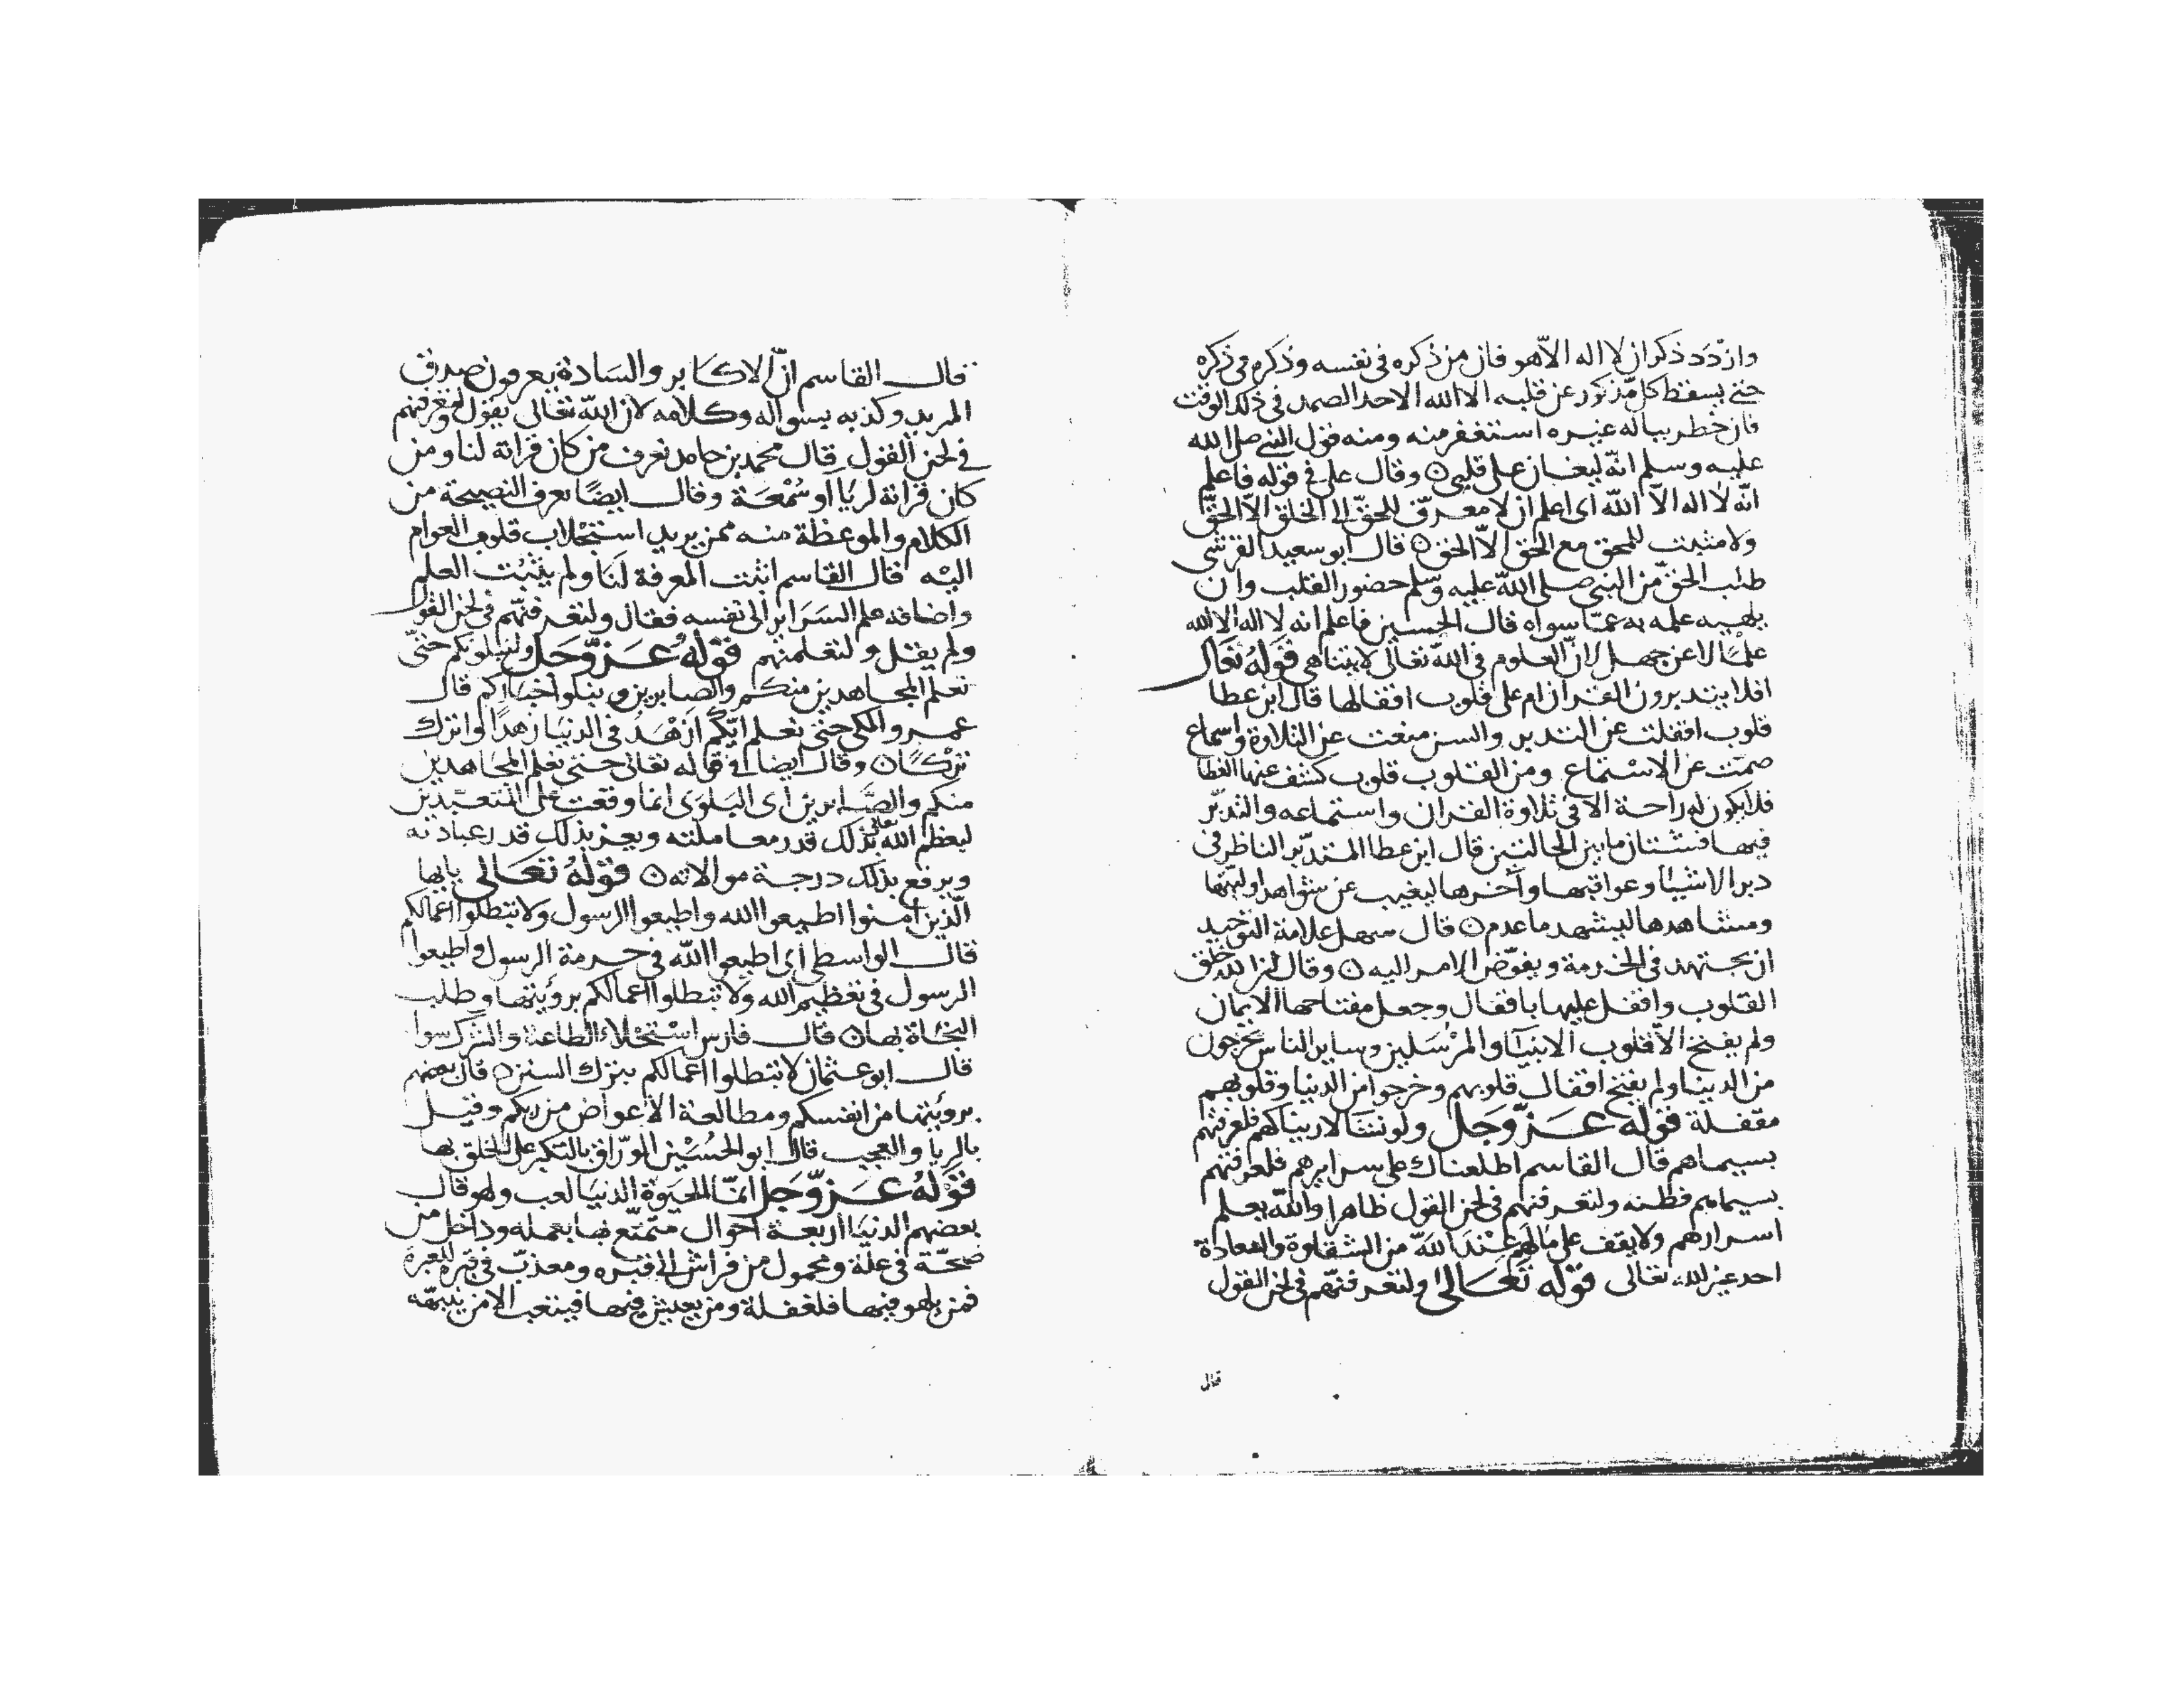 وازدد ذكر ان لا اله الا هو فان من ذكره في نفسه وذكره في ذكره
حتى يسقط كل مذكور عن قلبه الا الله الاحد الصمد في ذلك الوقت
فان خطر بباله غيره استغفر منه ومنه قول النبي صلى الله
عليه وسلم انّه ليغان على قلبي ن وقال على في قوله فاعلم
انّه لا اله الّا اللّه اى اعلم ان لا معرّف للحقّ الى الخلق الّا الحقّ
ولا مثبت للمحق مع الحق الّا الحق ن قال ابو سعيد القرشى
طلب الحقّ من النبى صلى اللّه عليه وسلم حضور القلب وان
يهبه علمه به عمّا سواه قال الحسين فاعلم انه لا اله الا الله
علمًا لا عن جهل لان العلوم في اللّه تعالى لا يتناهى قوله تعالى
افلا يتدبرون القران ام على قلوب اقفالها قال ابن عطا
قلوب اقفلت عن التدبر والسن منعت عن التلاوة واسماع
صمّت عن الاستماع ومن القلوب قلوب كشف عنها الغطا
فلا يكون له راحة الا في تلاوة القران واستماعه والتدبّر
فيها فشتان ما بين الحالتين قال ابن عطا المتدبّر الناظر في
دبر الاشيا وعواقبها وآخرها ليغيب عن شواهد اوليتها
ومشاهدها ليشهد ما عدم ن قال سهل علامة التوحيد
ان يجتهد في الخدمة ويفوّض الامر اليه ن وقال ان الله خلق
القلوب واقفل عليها باقفال وجعل مفتاحها الايمان
ولم يفتح الّا قلوب الانبيا والمرسلين وساير الناس يخرجون
من الدنيا ولم يفتح اقفال قلوبهم وخرجوا من الدنيا وقلوبهم
مقفلة قوله عزّ وجل ولو نشا لاريناكهم فلعرفتهم
بسيماهم قال القاسم اطلعناك على سرايرهم فلعرفتهم
بسيماهم فطنه ولتعرفنهم في لحن القول ظاهرا واللّه يعلم
اسرارهم ولا يقف على مالهم عند اللّه من الشقاوة والسعادة
احد غير الله تعالى قوله تعالى ولتعرفنّهم في لحن القول
قال
قال القاسم انّ الاكابر والسادة يعرفون صدق
المريد وكذبه بسواله وكلامه لان اللّه تعالى يقول ولتعرفنهم
في لحن القول قال محمد بن حامد تعرف من كان قراته لنا ومن
كان قراته لريا او سُمْعَة وقال ايضًا تعرف النصيحة من
الكلام والموعظة منه ممن يريد استجلاب قلوب العوام
اليه قال القاسم اثبت المعرفة لنا ولم يثبت العلم
واضافه علم السراير الى نفسه فقال ولتعرفنّهم في لحن القول
ولم يقل ولتعلمنهم قوله عزّ وجل ولنبلونكم حتّى
نعلم المجاهدين منكم والصابرين ونبلوا اخباركم قال
عمرو المكى حتى نعلم ايّكم ازهد في الدنيا زهدًا واترك
تركًا ن وقال ايضا في قوله تعالى حتى نعلم المجاهدين
منكم والصّابرين اى البلوى انما وقعت على المتعبدين
ليعظم الله تعالى بذلك قدر معاملته ويعز بذلك قدر عبادته
ويرفع بذلك درجة موالاته ن قوله تعالى يايها
الّذين امنوا اطيعوا الله واطيعوا الرسول ولا تبطلوا اعمالكم
قال الواسطى اى اطيعوا اللّه في حرمة الرسول واطيعوا
الرسول في تعظيم الله ولا تبطلوا اعمالكم برؤيتها وطلب
النجاة بها ن قال فارس استحلاء الطاعة والشرك سوا
قال ابو عثمان لا تبطلوا اعمالكم بترك السنن ن قال بعضهم
برؤيتها من انفسكم ومطالعة الاعواض من ربكم وقيل
بالريا والعجب قال ابو الحسين الورّاق بالتكبر على الخلق بها
قوله عزّ وجل انّما الحيوة الدنيا لعب ولهو قال
بعضهم الدنيا اربعة احوال متمتّع بها بعمله وداخل من
صحّة في علة ومحمول من فراش الى قبره ومعذّب في قبره للعبرة
فمن يلهو فيها فلغفلة ومن يعيش فيها فيتعب الا من ينبهه